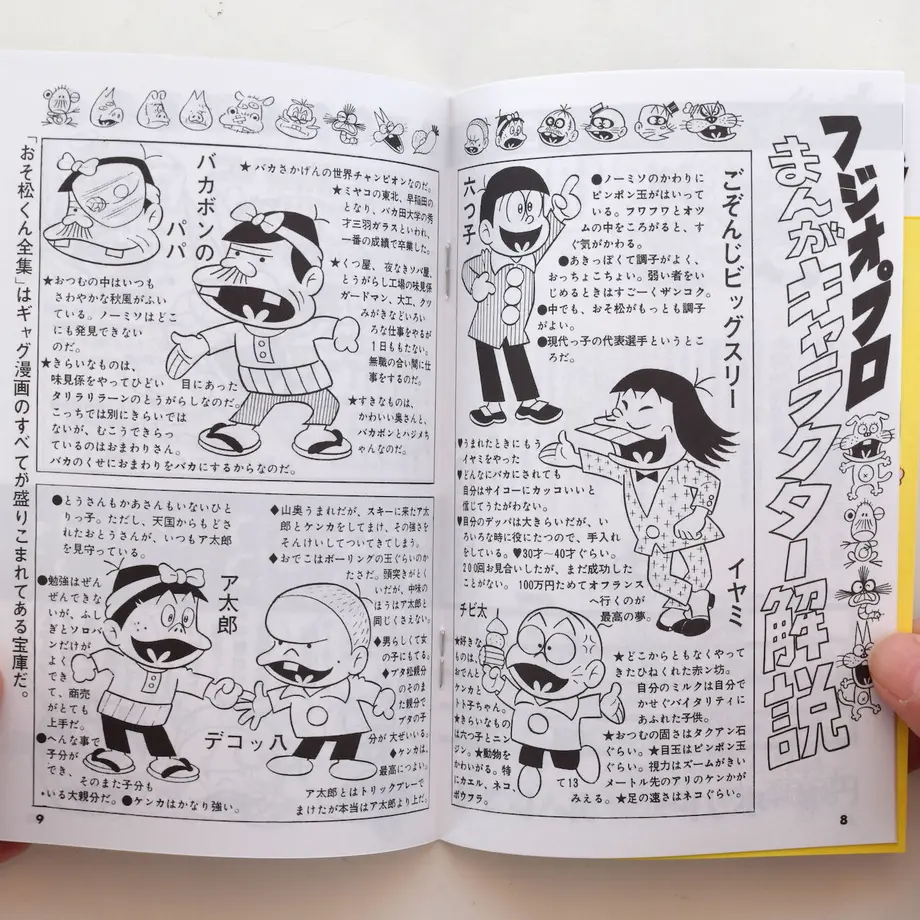 フジオプロ
まんがキャラクター解説
ごぞんじビッグスリー
六つ子
●ノーミソのかわりに
ピンポン玉がはいって
いる。フワフワとオツ
ムの中をころがると、す
ぐ気がかわる。
●あきっぽくて調子がよく、
おっちょこちょい。弱い者をい
じめるときはすごーくザンコク。
●中でも、おそ松がもっとも調子
がよい。
●現代っ子の代表選手というとこ
ろだ。
イヤミ
♥うまれたときにもう
イヤミをやった
♥どんなにバカにされても
自分はサイコーにカッコいいと
信じてうたがわない。
♥自分のデッパは大きらいだが、い
ろいろな時に役にたつので、手入れ
をしている。♥30才ー40才ぐらい。
200回お見合いしたが、まだ成功した
ことがない。100万円ためてオフランス
へ行くのが
最高の夢。
チビ太
★好きな
ものは、
おでんと
ケンカと
トト子ちゃん。
★きらいなもの
は六つ子とニン
ジン。★動物を
かわいがる。特
にカエル、ネコ、
ボウフラ。
★どこからともなくやって
きたひねくれた赤ン坊。
自分のミルクは自分で
かせぐバイタリティに
あふれた子供。
★おつむの固さはタクアン石
ぐらい。★目玉はピンポン玉
ぐらい。視力はズームがきい
て13メートル先のアリのケンカが
みえる。★足の速さはネコぐらい。
8
バカボンの
パパ
★バカさかげんの世界チャンピオンなのだ。
★ミヤコの東北、早稲田の
となり、バカ田大学の秀
才三羽ガラスといわれ、
一番の成績で卒業した。
★くつ屋、夜なきソバ屋、
とうがらし工場の味見係
ガードマン、大工、クツ
みがきなどいろい
ろな仕事をやるが
1日ももたない。
無職の合い間に仕
事をするのだ。
★すきなものは、
かわいい奥さんと、
バカボンとハジメち
ゃんなのだ。
★おつむの中はいつも
さわやかな秋風がふい
ている。ノーミソはどこ
にも発見できない
のだ。
★きらいなものは、
味見係をやってひどい目にあった
タリラリラーンのとうがらしなのだ。
こっちでは別にきらいでは
ないが、むこうできらっ
ているのはおまわりさん。
バカのくせにおまわりをバカにするからなのだ。
ア太郎
●とうさんもかあさんもいないひと
りっ子。ただし、天国からもどさ
れたおとうさんが、いつもア太郎
を見守っている。
●勉強はぜん
ぜんできな
いが、ふし
ぎとソロバ
ンだけが
よく
でき
て、商売
がとても
上手だ。
●へんな事で
子分が
でき、
そのまた子分も
いる大親分だ。●ケンカはかなり強い。
デコッ八
◆山奥うまれだが、スキーに来たア太
郎とケンカをしてまけ、その強さを
そんけいしてついてきてしまう。
◆おでこはボーリングの玉ぐらいのか
たさだ。頭突きがとく
いだが、中味の
ほうはア太郎と
同じくさえない。
◆男らしくて女
の子にもてる。
◆ブタ松親分
の子のまま
た親分で
ブタの子
分が大ぜいいる。
◆ケンカは、
最高につよい。
ア太郎とはトリックプレーで
まけたが本当はア太郎より上だ。
「おそ松くん全集」はギャグ漫画のすべてが盛りこまれてある宝庫だ。
9